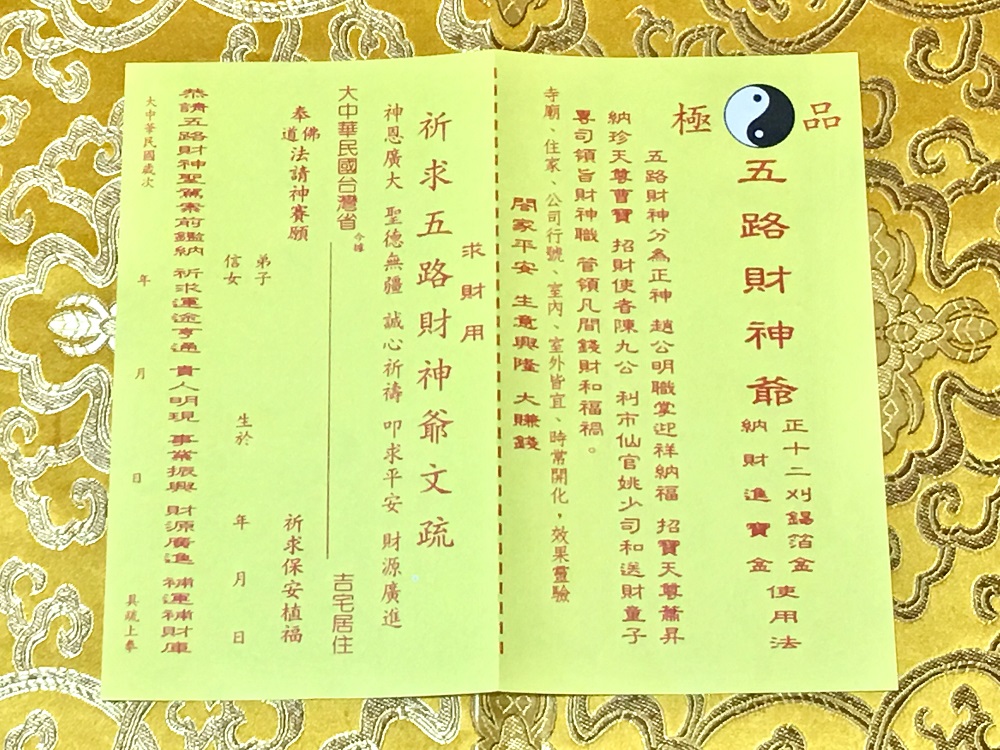 極品
五路財神爺
正十二刈錫箔金
納財進寶金
使用法
五路財神分為正神 趙公明職掌迎祥納福 招寶天尊蕭昇
納珍天尊曹寶 招財使者陳九公 利市仙官姚少司和送財童子
專司領旨財神職 管領凡間錢財和福禍。
寺廟、住家、公司行號、室內、室外皆宜、時常開化，效果靈驗
闔家平安 生意興隆 大賺錢
求財用
祈求五路財神爺文疏
神恩廣大 聖德無疆 誠心祈禱 叩求平安 財源廣進
大中華民國台灣省 今據 吉宅居住
奉佛道法請神賽願 祈求保安植福
弟子
信女
生於 年 月 日
恭請五路財神聖駕案前鑑納 祈求運途亨通 貴人明現 事業振興 財源廣進 補運補財庫
大中華民國歲次 年 月 日 具疏上奉